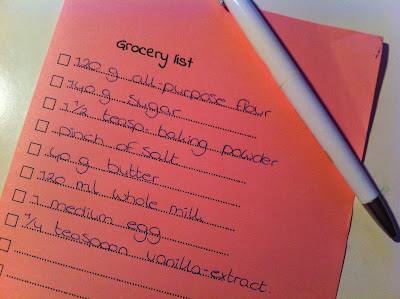 Grocery list
120 g all-purpose flour
140 g sugar
1 1/2 teasp. baking powder
pinch of salt
40 g butter
120 ml whole milk
1 medium egg
1/4 teaspoon vanilla-extract.